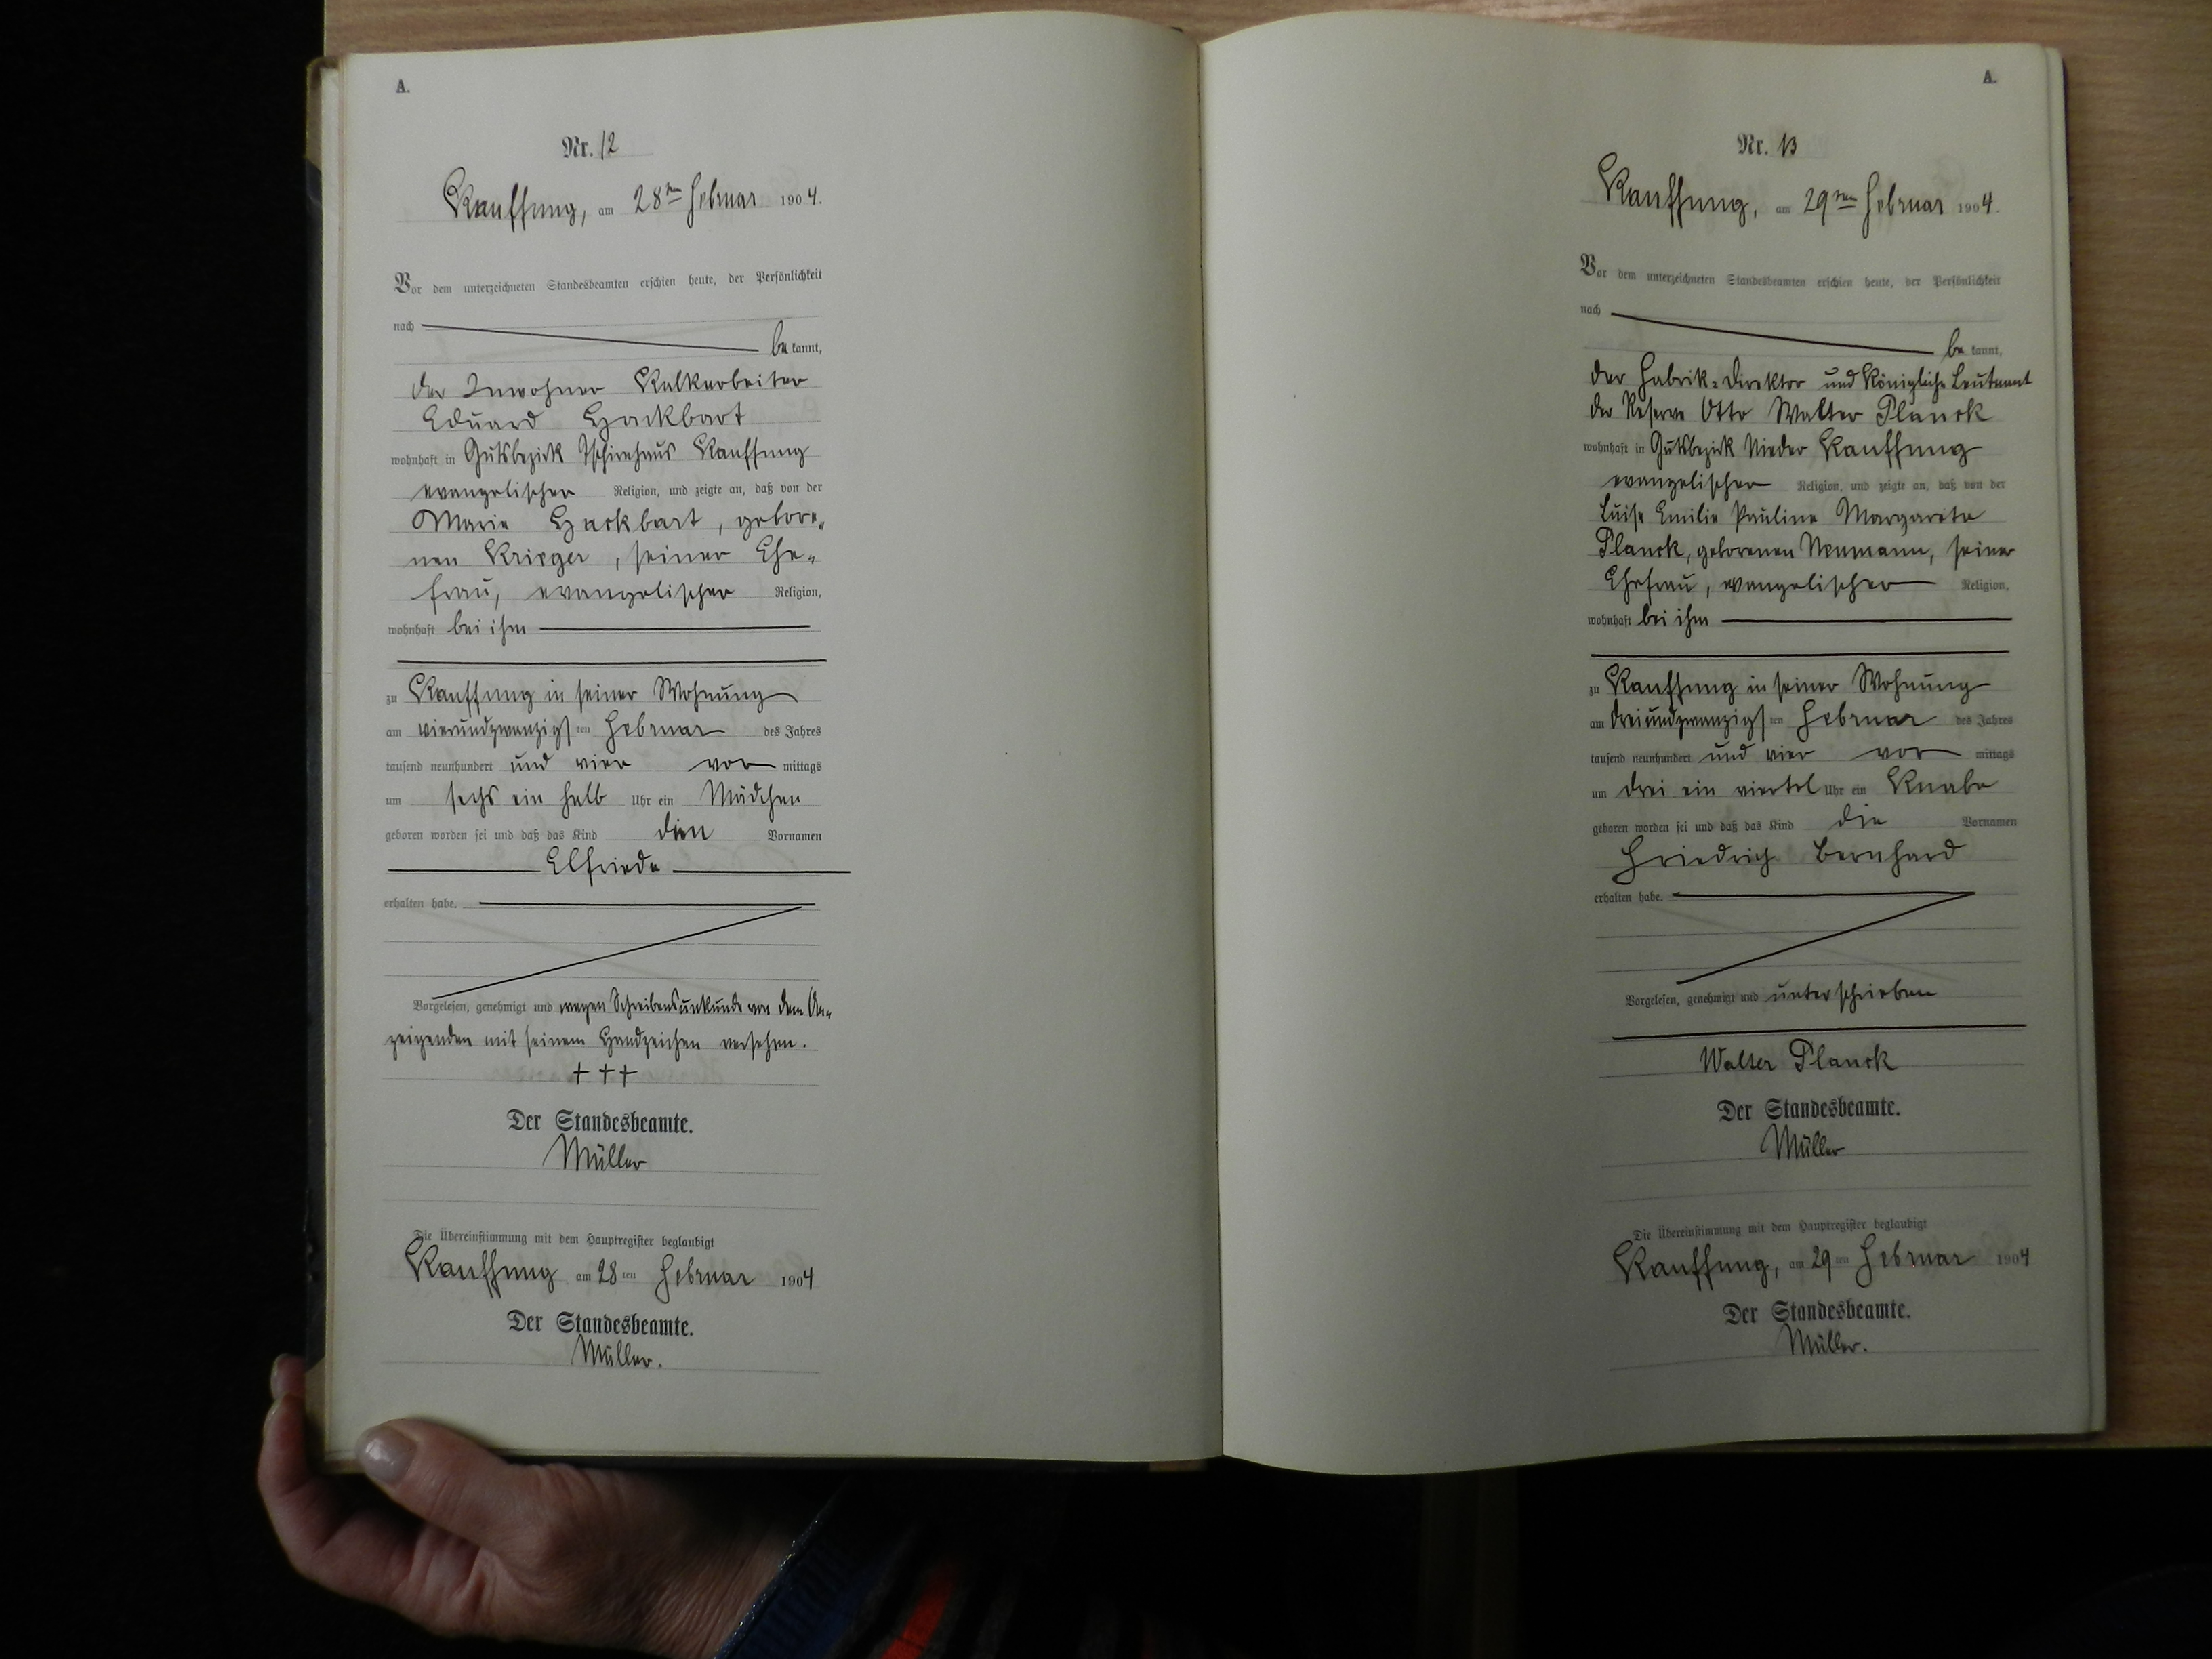 A.
Nr. 12
Kauffung, am 28ten Februar 1904.
Vor dem unterzeichneten Standesbeamten erschien heute, der Persönlichkeit
nach
be kannt,
der Inwohner Kalkarbeiter
Eduard Hackbart
wohnhaft in Gutsbezirk Tschirnhaus Kauffung
evangelischer Religion, und zeigte an, daß von der
Marie Hackbart, gebore„
nen Krieger, seiner Ehe„
frau, evangelischer Religion,
wohnhaft bei ihm
zu Kauffung in seiner Wohnung
am vierundzwanzigsten Februar des Jahres
tausend neunhundert und vier vor mittags
um sechs ein halb Uhr ein Mädchen
geboren worden sei und daß das Kind den Vornamen
Elfriede
erhalten habe.
Vorgelesen, genehmigt und wegen Schreibensunkunde von dem An„
zeigenden mit seinem Handzeichen versehen.
+ + +
Der Standesbeamte.
Müller
Die Übereinstimmung mit dem Hauptregister beglaubigt
Kauffung am 28ten Februar 1904
Der Standesbeamte.
Müller.
A.
Nr. 13
Kauffung, am 29ten Februar 1904.
Vor dem unterzeichneten Standesbeamten erschien heute, der Persönlichkeit
nach
be kannt,
der Fabrik-Direktor und Königliche Leutnant
der Reserve Otto Walter Planck
wohnhaft in Gutsbezirk Nieder Kauffung
evangelischer Religion, und zeigte an, daß von der
Luise Emilie Pauline Margarete
Planck, geborenen Neumann, seiner
Ehefrau, evangelischer Religion,
wohnhaft bei ihm
zu Kauffung in seiner Wohnung
am dreiundzwanzigsten Februar des Jahres
tausend neunhundert und vier vor mittags
um drei ein viertel Uhr ein Knabe
geboren worden sei und daß das Kind die Vornamen
Friedrich Bernhard
erhalten habe.
Vorgelesen, genehmigt und unterschrieben
Walter Planck
Der Standesbeamte.
Müller
Die Übereinstimmung mit dem Hauptregister beglaubigt
Kauffung, am 29ten Februar 1904
Der Standesbeamte.
Müller.